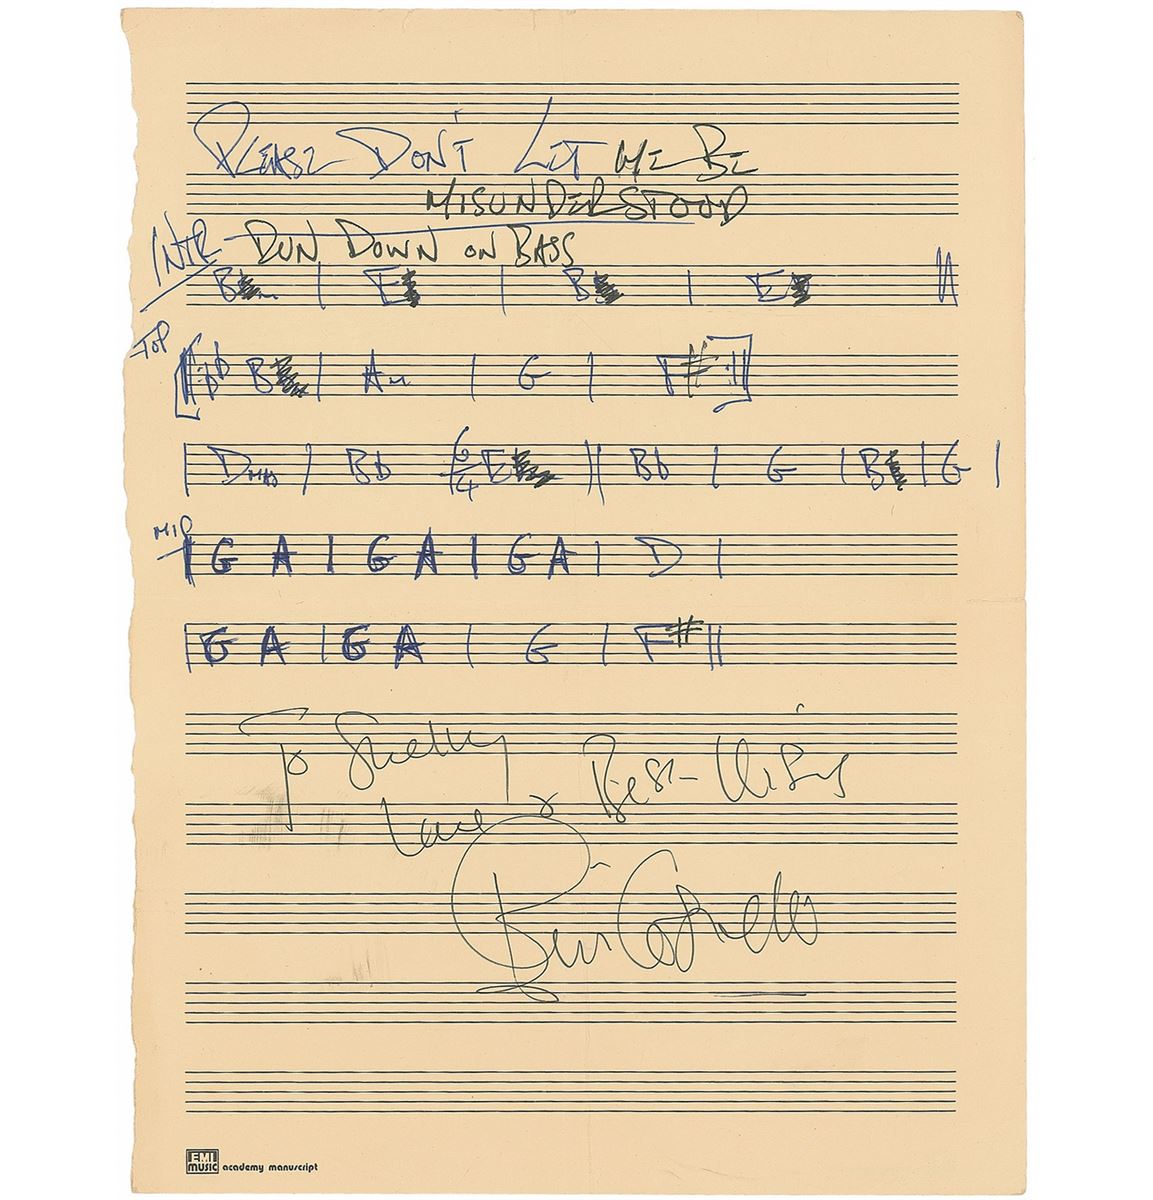 PLEASE DON'T LET ME BE
MISUNDERSTOOD
INTR RUN DOWN ON BASS
B | E | B | E
TOP
B | Am | G | F# :||
| DMAJ | Bb 6/4 E || Bb | G | B | G |
MID
| G A | G A | G A | D |
| G A | G A | G | F# ||
To Shelley
Love & Best Wishes
Costello
EMI
MUSIC academy manuscript